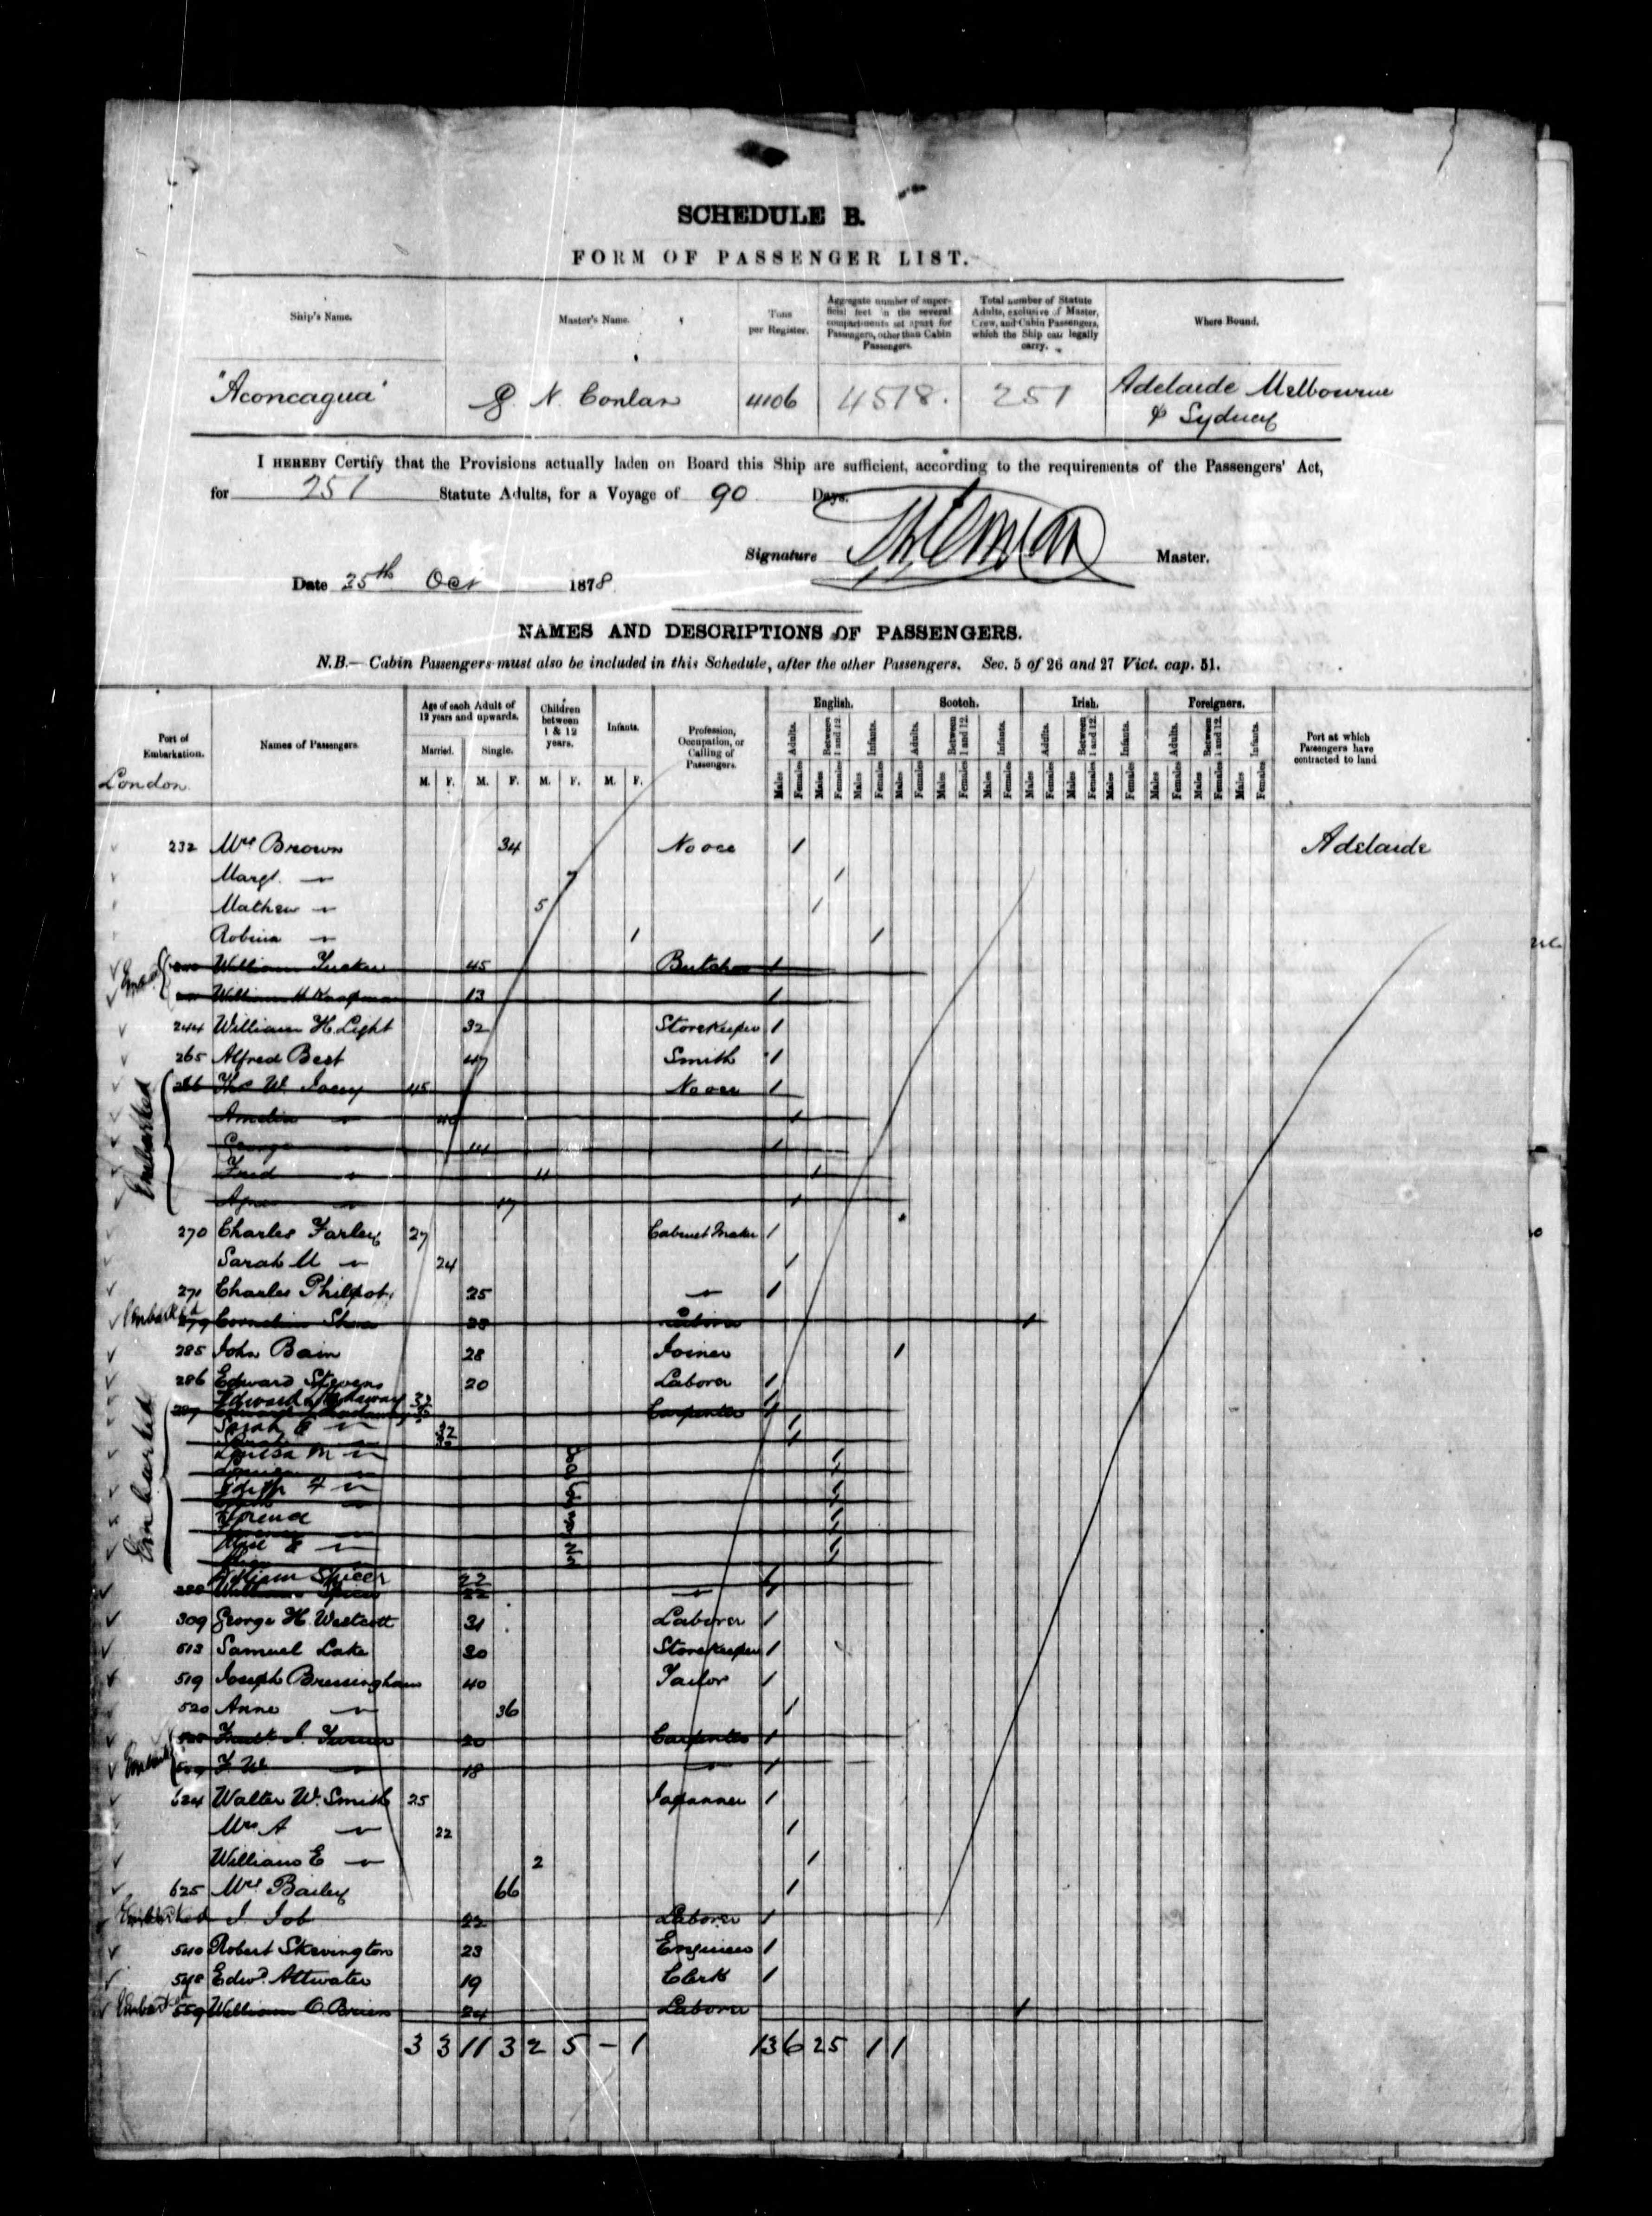 SCHEDULE B.
FORM OF PASSENGER LIST.
Ship's Name. Master's Name. Tons per Register. Aggregate number of superficial feet in the several compartments set apart for Passengers, other than Cabin Passengers. Total number of Statute Adults, exclusive of Master, Crew, and Cabin Passengers, which the Ship can legally carry. Where Bound.
"Aconcagua" N. Conlan 4106 4518. 251 Adelaide Melbourne
& Sydney
I HEREBY Certify that the Provisions actually laden on Board this Ship are sufficient, according to the requirements of the Passengers' Act,
for 251 Statute Adults, for a Voyage of 90 Days.
Signature Master.
Date 25th Oct 1878
NAMES AND DESCRIPTIONS OF PASSENGERS.
N.B.— Cabin Passengers must also be included in this Schedule, after the other Passengers. Sec. 5 of 26 and 27 Vict. cap. 51.
Port of Embarkation. Names of Passengers. Age of each Adult of 12 years and upwards. Children between 1 & 12 years. Infants. Profession, Occupation, or Calling of Passengers. English. Scotch. Irish. Foreigners. Port at which Passengers have contracted to land
Married. Single. Adults. Between 1 and 12. Infants. Adults. Between 1 and 12. Infants. Adults. Between 1 and 12. Infants. Adults. Between 1 and 12. Infants.
London. M. F. M. F. M. F. M. F. Males Females Males Females Males Females Males Females Males Females Males Females Males Females Males Females Males Females Males Females Males Females Males Females
232 Mrs Brown 34 No occ 1 Adelaide
Margt. 〃 7 1
Mathew 〃 5 1
Robina 〃 1 1
William Tucker 45 Butcher 1
William H 13 1
244 William H. Light 32 Storekeeper 1
265 Alfred Best 47 Smith 1
Embarked 266 Thos W. 45 No occ 1
Amelia 〃 40 1
George 〃 14 1
Fred 〃 11 1
Agnes 〃 17 1
270 Charles Farley 27 Cabinet Maker 1
Sarah M 〃 24 1
271 Charles Philpot 25 〃 1
Embarked 279 Cornelius Shea Laborer 1
285 John Bain 28 Joiner 1
286 Edward Stevens 20 Laborer 1
Edward
287 Carpenter 1
Sarah E 〃 32 1
Embarked Louisa M 〃 8 1
Edith F 〃 1
Florence 1
〃 2 1
William Spicer 22 1
288 William Spicer 22 〃 1
309 George H. Westcott 31 Laborer 1
513 Samuel Lake 30 Storekeeper 1
519 Joseph Bressingham 40 Tailor 1
520 Anne 〃 36 1
Fredk J. Turner 20 Carpenter 1
F. W. 〃 18 〃 1
624 Walter W. Smith 25 Japanner 1
Mrs A 〃 22 1
William E 〃 2 1
625 Mrs Bailey 66 1
Embarked J. Job 22 Laborer 1
540 Robert Skevington 23 Engineer 1
548 Edwd. Attwater 19 Clerk 1
559 William O'Brien 24 Laborer 1
3 3 11 3 2 5 – 1 13 6 2 5 1 1